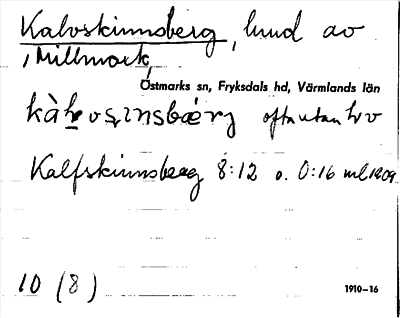 Kalvskinnsberg, lund av
i Millmark,
Östmarks sn, Fryksdals hd, Värmlands län
oftautan
Kalfskinnsberg 8:12 o. 0:16 ml 1909
10 (8)
1910–16